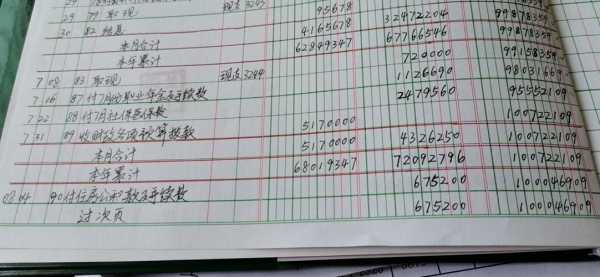 29 79 取现 现支3243
30 82 结息 95678 99878359
本月合计 4165678 32472204 99878359
本年累计 62849347 67766546 99878359
7 03 83 取现 现支3244 720000 99158359
7 06 87 付7月份职业年金及手续费 1126690 98031669
7 22 88 付7月社保医保费 2479560 95552109
7 31 89 收财政各项预算拨款 5170000 100722109
本月合计 5170000 4326250 100722109
本年累计 68019347 72092796 100722109
04 90 付住房公积款及手续费 675200 100046909
过次页 675200 100046909